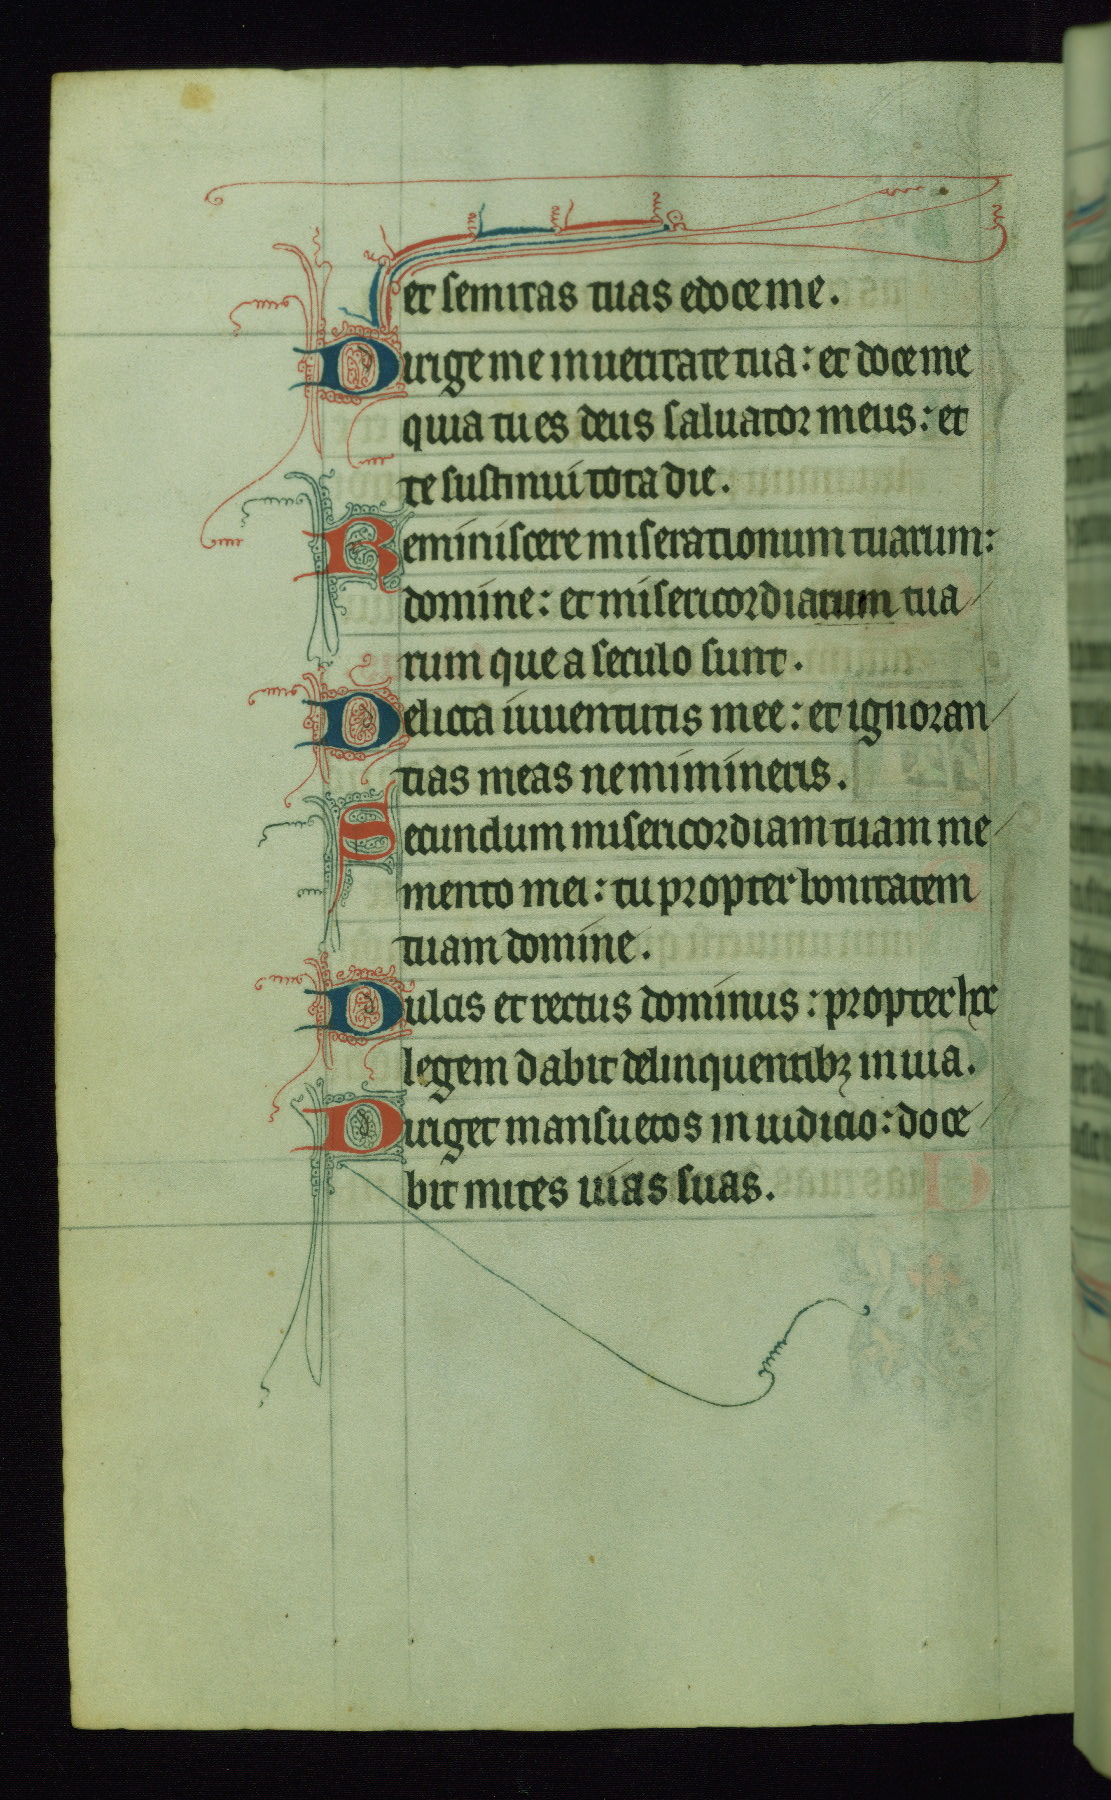 et semitas tuas edoce me.
Dirige me in ueritate tua: et doce me
quia tu es deus saluator meus: et
te sustinui tota die.
Reminiscere miserationum tuarum:
domine: et misericordiarum tua
rum que a seculo sunt.
Delicta iuuentutis mee: et ignoran
tias meas ne mimineris.
Secundum misericordiam tuam me
mento mei: tu propter bonitatem
tuam domine.
Dulcis et rectus dominus: propter hoc
legem dabit delinquentibꝫ in uia.
Diriget mansuetos in iudicio: doce
bit mites uias suas.